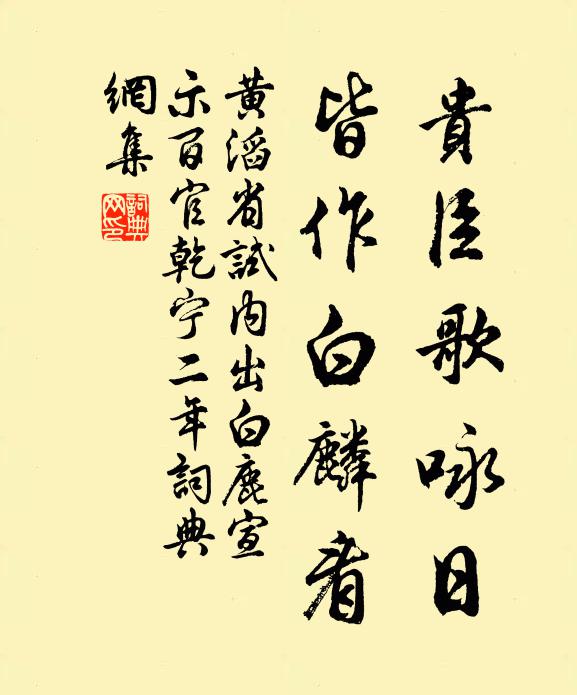 貴臣歌咏日
皆作白麟看
黃滔省試內出白鹿宣
示百官乾宁二年詞典
網集
詞典網印